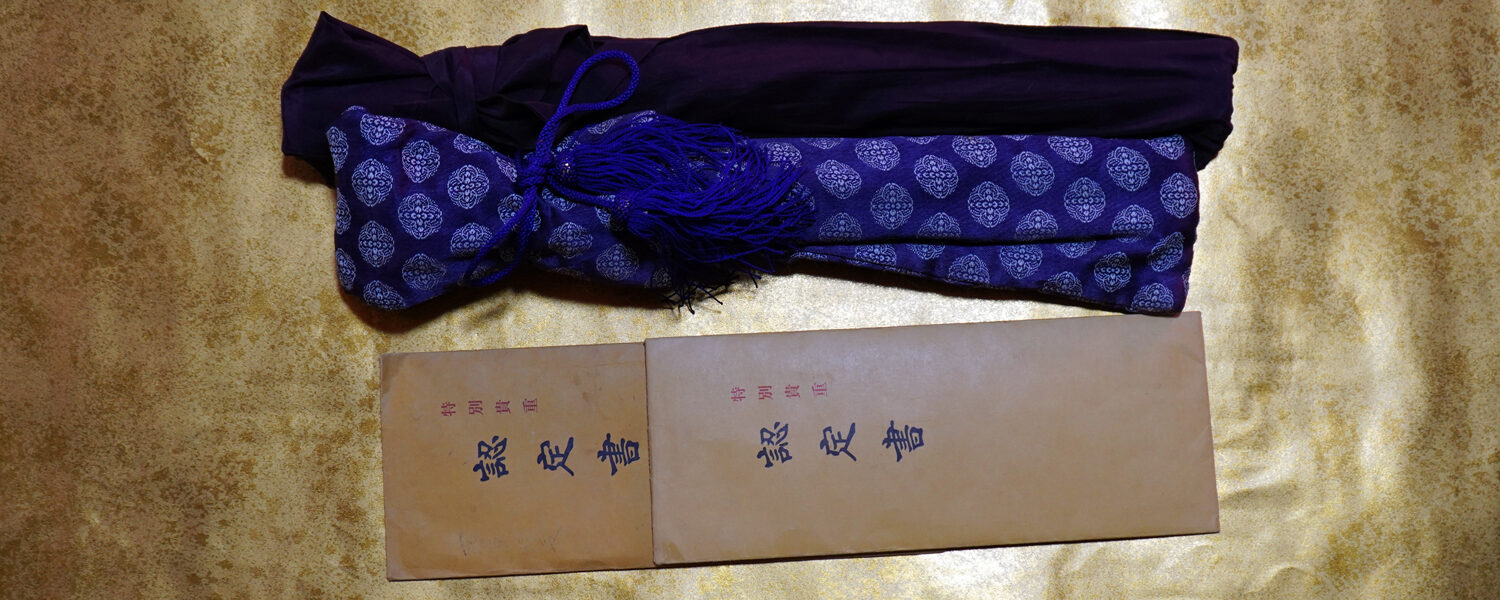 特別貴重
認定書
特別貴重
認定書